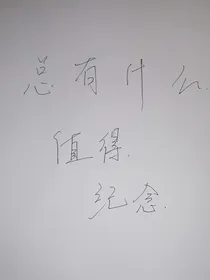 总有什么
值得.
纪念.